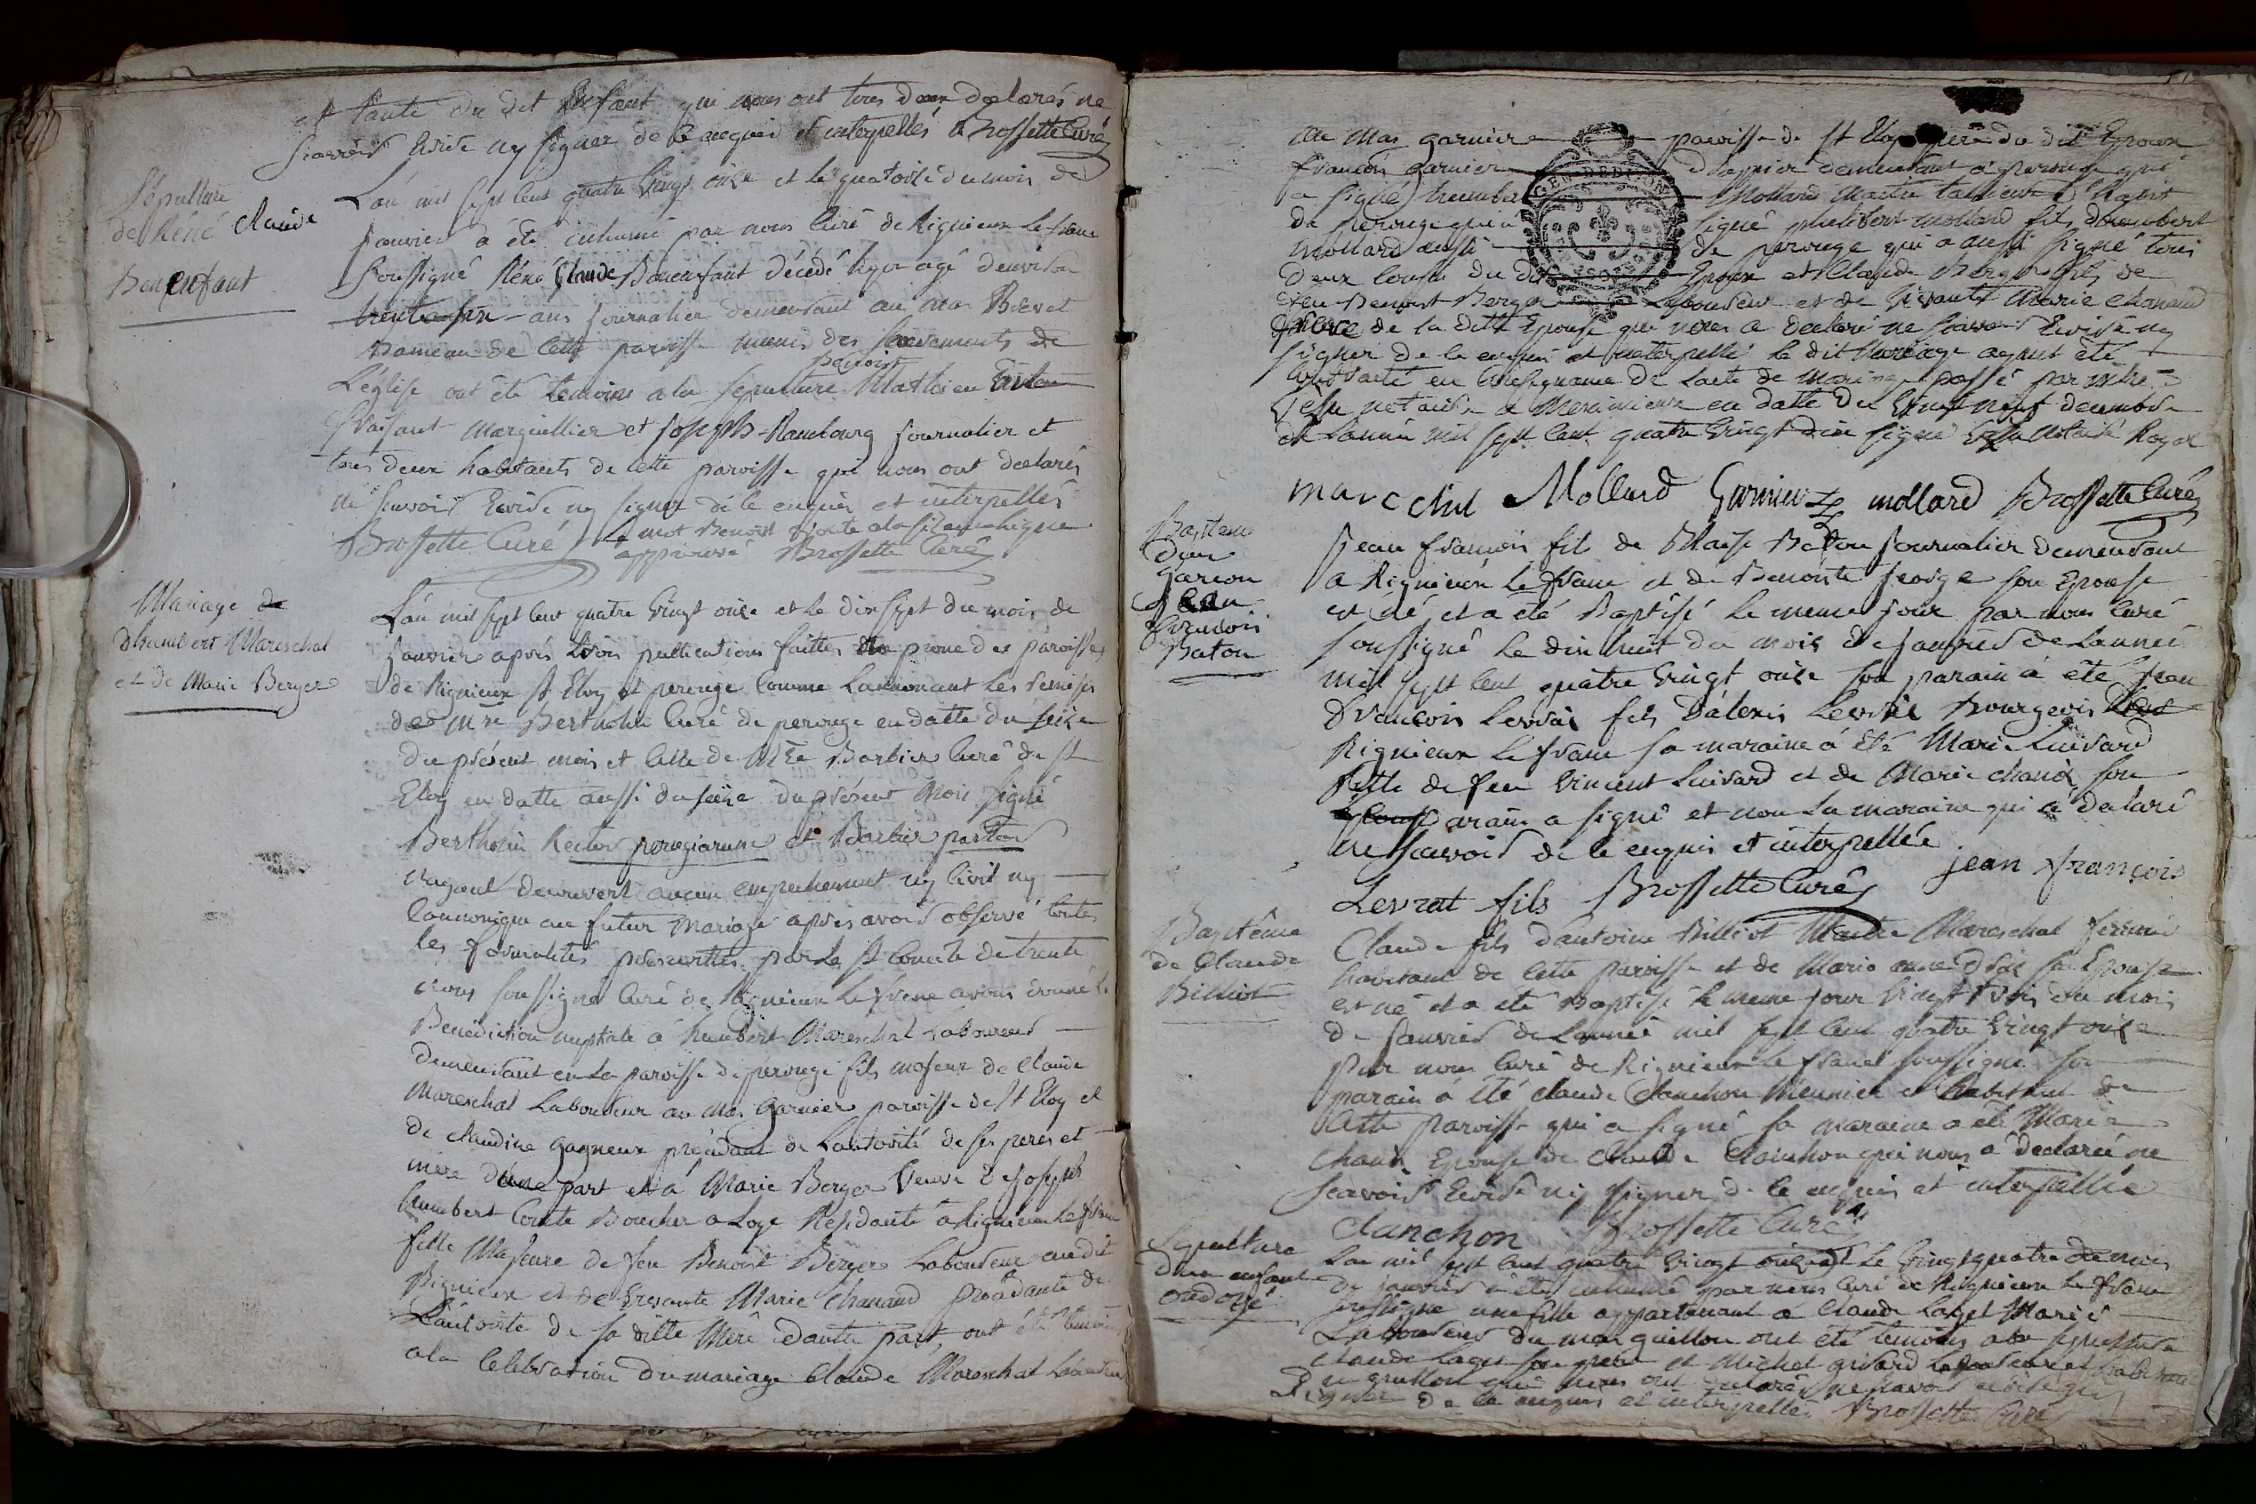 et tante du dit Enfant qui nous ont tous deux declarés ne
scavoir Ecrire ny signer de ce enquis et interpellés Brossette Curé
Sépulture
de Réné Claude
Bonenfant
L'an mil sept cent quatre vingt onze et le quatorze du mois de
janvier a été inhumé par nous Curé de Rignieux le franc
soussigné Réné Claude Bonenfant décédé hyer agé denviron
trente six ans journalier demeurant au mas Brevet
hameau de cette paroisse munis des sacrements de
Benoist
L'église ont été temoins a la sepulture Mathieu
marguillier et joseph Rambourg journalier et
tous deux habitants de cette paroisse qui nous ont declarés
ne scavoir Ecrire ny signer de ce enquis et interpellés
Brossette Curé Le mot Benoist
approuvé Brossette Curé
Mariage de
dhumbert Mareschal
et de Marie Berger
L'an mil sept cent quatre vingt onze et le dix sept du mois de
janvier aprés trois publications faittes au prone des paroisses
de Rignieux st Eloy et perouge comme Lannoncant les remises
de mre Bertholin Curé de perouge en datte du seize
du présent mois et celle de Mre Barbier Curé de st
Eloy en datte aussi du seize du présent mois signé
Bertholin Rector perogiarum et Barbier pastor
nayant decouvert aucun empechement ny Civil ny
Cannonique au futur mariage aprés avoir observé toutes
les formalités prescrittes par le st Concile de trente
nous soussigné Curé de Rignieux le franc avons donné la
Benediction nuptiale a humbert Mareschal Laboureur
demeurant en la paroisse de perouge fils majeur de Claude
Mareschal Laboureur au mas garnier paroisse de st Eloy et
de claudine gagneux procédant de Lautorité de ses peres et
mere d'une part et á Marie Berger Veuve de joseph
humbert Comte Boucher a Loye Residante a Rignieux le franc
fille Majeure de feu Benoist Berger Laboureur audit
Rignieux et de vivante Marie Chanand procédante de
L'autorité de sa ditte Mére d'autre part, ont été temoins
a la Celebration du mariage Claude Mareschal Laboureur
au mas garnier paroisse de st Eloy pere du dit Epoux
francois garnier drappier demeurant a perouge qui
a signé humbert Mollard Maitre tanneur
de perouge qui a signé philibert mollard fils dhumbert
mollard aussi de perouge qui a aussi signé tous
deux cousin du dit Epoux et Claude Berger fils de
feu Benoist Berger Laboureur et de vivante Marie Chanand
frere de la ditte Epouse qui nous a declaré ne scavoir Ecrire ny
signer de ce enquis et interpellé le dit Mariage ayant été
contracté en Consequence de Lacte de mariage passé par mtre
notaire a Meximieux en datte du vingt neuf decembre
de Lannée mil sept cent quatre vingt dix signé notaire Royal
marechal Mollard Garnier mollard Brossette Curé
Baptême
d'un
garcon
Jean
francois
Baton
jean francois fils de Blaise Baton journalier demeurant
a Rignieux le franc et de Benoiste son Epouse
est né et a été Baptisé le meme jour par nous Curé
soussigné le dix huit du mois de janvier de Lannée
mil sept cent quatre vingt onze son parain á été Jean
francois Levrat fils d'alexis Levrat Bourgeois
Rignieux le franc sa maraine á été Marie Luisard
fille de feu Vincent Luisard et de Marie chanel son
arain a signé et non la maraine qui a déclaré
ne scavoir de ce enquis et interpellée
jean françois
Levrat fils Brossette Curé
Baptême
de Claude
Billiot
Claude fils d'antoine Billiot Maitre Mareschal
habitant de cette paroisse et de Marie anne son Epouse
est né et a été Baptisé le meme jour vingt trois du mois
de janvier de Lannée mil sept cent quatre vingt onze
par nous Curé de Rignieux le franc soussigné son
parain á été claude Clanchon Meunier et habitant de
cette paroisse qui a signé sa maraine a été Marie
Epouse de Claude Clanchon qui nous a declarée ne
scavoir Ecrire ny signer de ce enquis et interpellée
Clanchon Brossette Curé
Sepulture
d'un enfant
ondoyé
Lan mil sept cent quatre vingt onze et le vingt quatre du mois
de janvier a été inhumé par nous Curé de Rignieux le franc
soussigné une fille appartenant a Claude Laget Marié
Laboureur du mas guillon ont été temoins a la sepulture
Claude Laget son pere et Michel Laboureur et habitant
du guillon qui nous ont declarés ne scavoir ecrire ny
signer de ce enquis et interpellés Brossette Curé